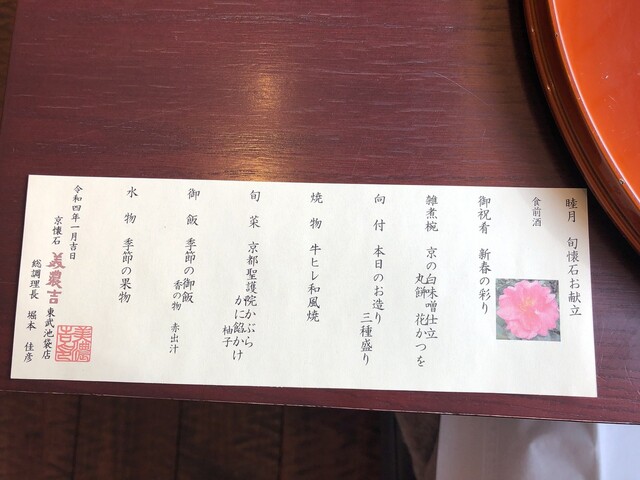 睦月　旬懐石お献立
食前酒
御祝肴　新春の彩り
雑煮椀　京の白味噌仕立
丸餅　花かつを
向　付　本日のお造り
三種盛り
焼　物　牛ヒレ和風焼
旬　菜　京都聖護院かぶら
かに餡かけ
柚子
御　飯　季節の御飯
香の物　赤出汁
水　物　季節の果物
令和四年一月吉日
京懐石　美濃吉　東武池袋店
総調理長　堀本　佳彦
美濃吉